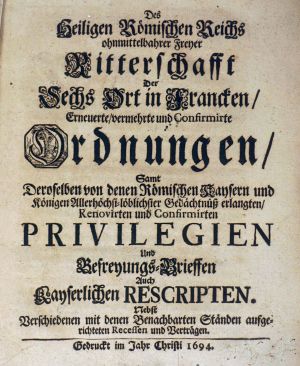 Des
Heiligen Römischen Reichs
ohnmittelbahrer Freyer
Ritterschafft
Der
Sechs Ort in Francken/
Erneuerte/vermehrte und Confirmirte
Ordnungen/
Samt
Deroselben von denen Römischen Kaysern und
Königen Allerhöchst-löblichster Gedächtnüß erlangten/
Renovirten und Confirmirten
PRIVILEGIEN
Und
Befreyungs-Brieffen
Auch
Kayserlichen RESCRIPTEN.
Nebst
Verschiedenen mit denen Benachbarten Ständen aufge-
richteten Recessen und Verträgen.
Gedruckt im Jahr Christi 1694.